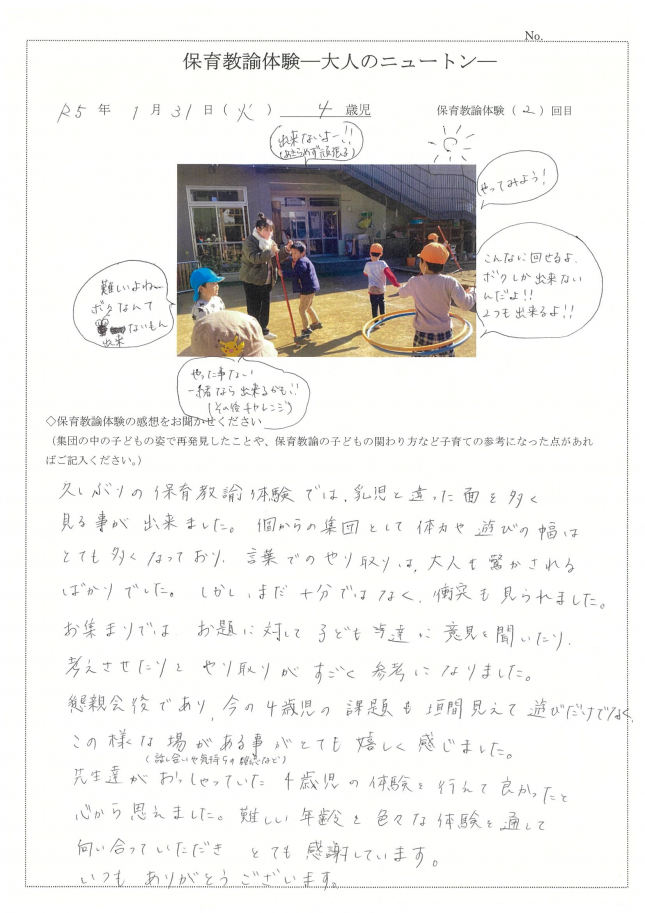 No.
保育教諭体験―大人のニュートン―
R5 年 1 月 31 日（火） 4 歳児 保育教諭体験（2）回目
出来ないよー!!
(あきらめず頑張る)
やってみよう!
こんなに回せるよ.
ボクしか出来ない
んだよ!!
2つも出来るよ!!
難しいよね〜
ボクなんて
出来ないもん
やった事ない
一緒なら出来るかも!!
(その後チャレンジ)
◇保育教諭体験の感想をお聞かせください
（集団の中の子どもの姿で再発見したことや、保育教諭の子どもの関わり方など子育ての参考になった点があれ
ばご記入ください。）
久しぶりの保育教諭体験では、乳児と違った面を多く
見る事が出来ました。個からの集団として体力や遊びの幅は
とても多くなっており、言葉でのやり取りは、大人も驚かされる
ばかりでした。しかしまだ十分ではなく、衝突も見られました。
お集まりでは、お題に対して子ども達に意見を聞いたり、
考えさせたりとやり取りがすごく参考になりました。
懇親会後であり、今の4歳児の課題も垣間見えて遊びだけでなく、
この様な場がある事がとても嬉しく感じました。
(話し合いや気持ちの など)
先生達がおっしゃっていた4歳児の体験を行えて良かったと
心から思えました。難しい年齢を色々な体験を通して
向い合っていただきとても感謝しています。
いつもありがとうございます。